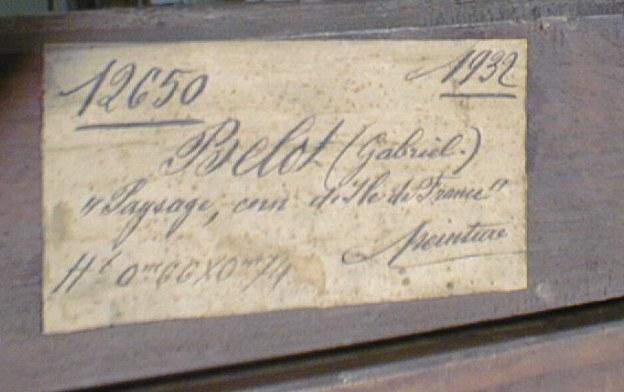 12650 1932
Belot (Gabriel.)
"Paysage, coin d'Ile de France"
Peinture
Ht 0m66X0m74